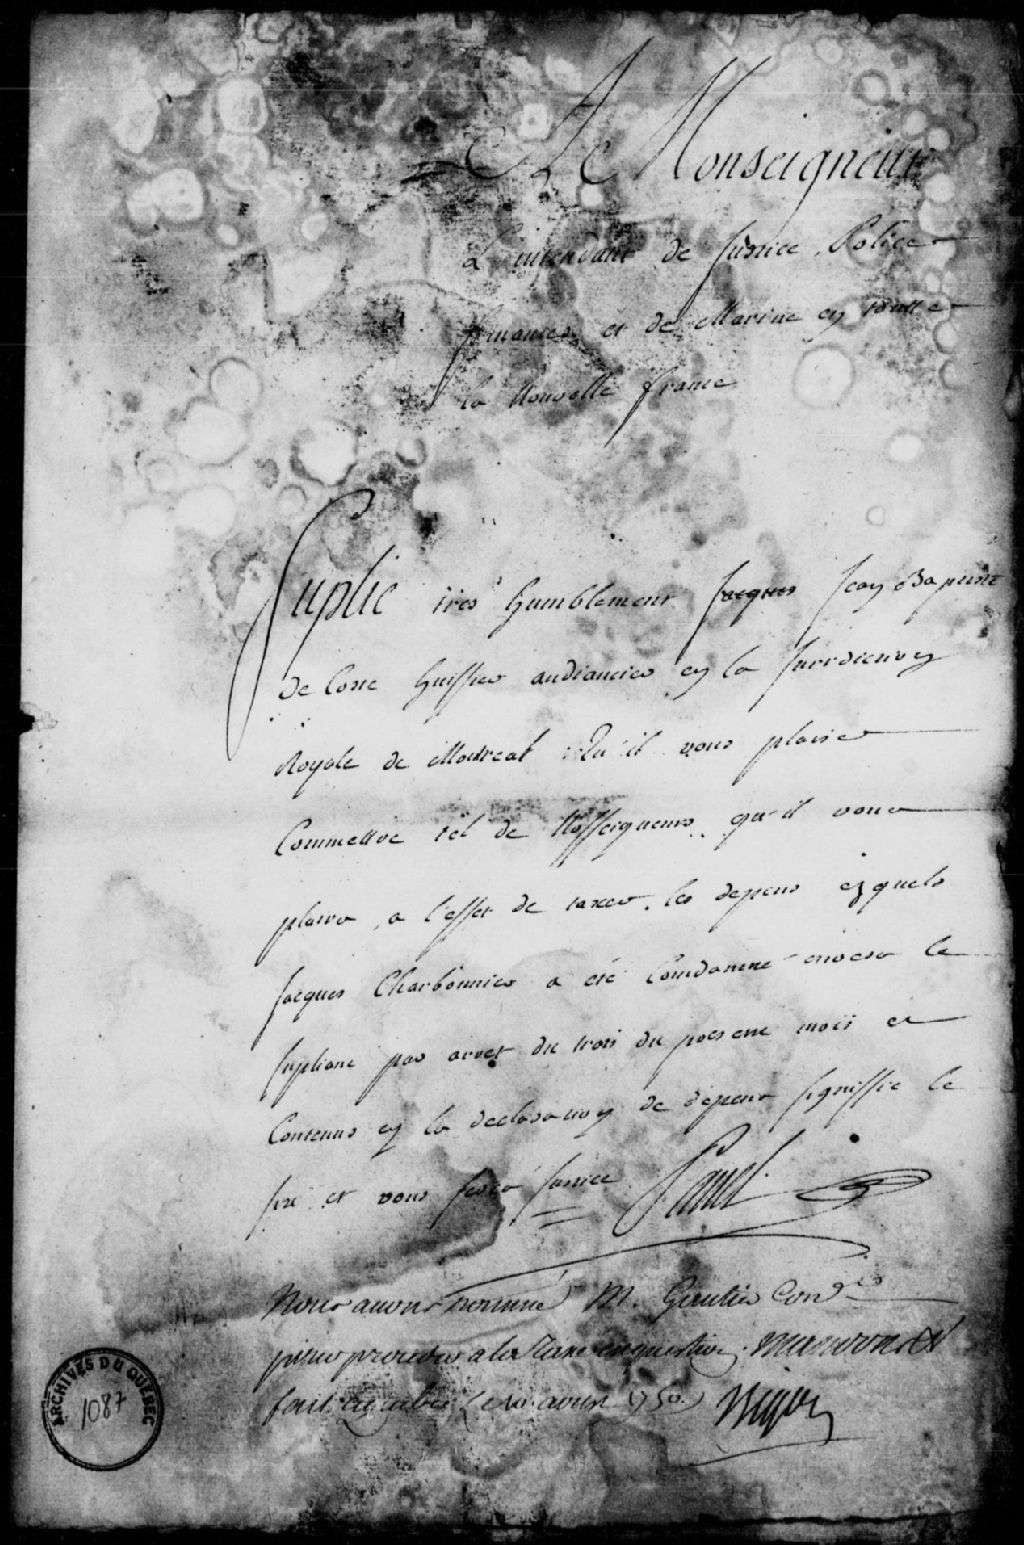 A Monseigneur
L'intendant de Justice, Police
finances et de Marine en toutte
la Nouvelle france
Suplie tres humblement Jacques Jean Baptiste
De Coste huissier audiancier en la Jurrdiction
Royale de Montreal Qu'il vous plaise
Commettre tel de Nosseigneurs qu'il vous
plaira, a l'effet de taxer les depens ezquels
Jacques Charbonnier a eté Condamné envers le
supliant par arret du trois du present mois et
Contenus en la declaration de depens signiffié le
et vous ferés Justice Panet
Nous avons nommé M. Gautier Con.er
pour proceder a la Taxe en question. Mandons &
fait a quebec Le 10 avril 1750 Bigot
ARCHIVES DU QUÉBEC
1087